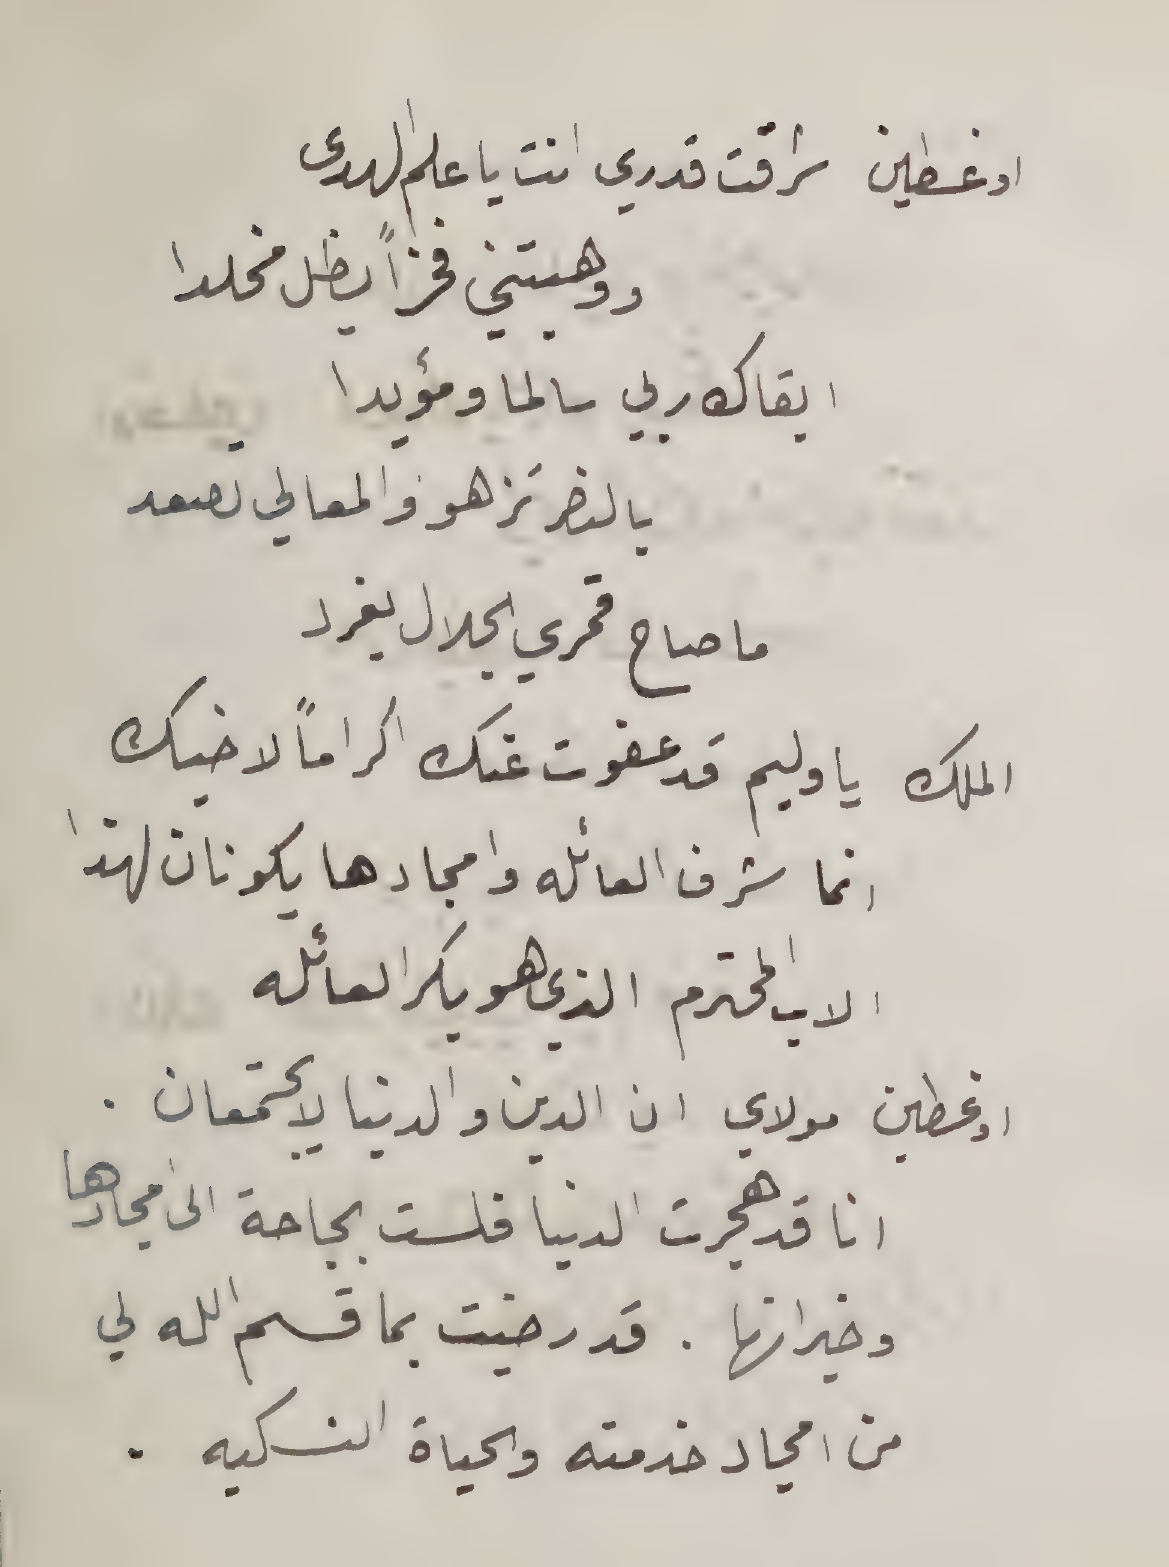 اوغسطين شرفت قدري انت يا علم الهدى
ووهبتني فخراً يظل مخلدا
ابقاك ربي سالما ومؤيدا
بالنصر تزهو والمعالي تصعد
ما صاح قمري الجلال يغرد
الملك يا وليم قد عفوت عنك اكراماً لاخيك
انما شرف العائله وامجادها يكونان لهذا
الاب المحترم الذي هو بكر العائله
اوغسطين مولاي ان الدين والدنيا لا يجتمعان .
انا قد هجرت الدنيا فلست بحاجة الى امجادها
وخيراتها . قد رضيت بما قسم الله لي
من امجاد خدمته والحياة النسكيه .